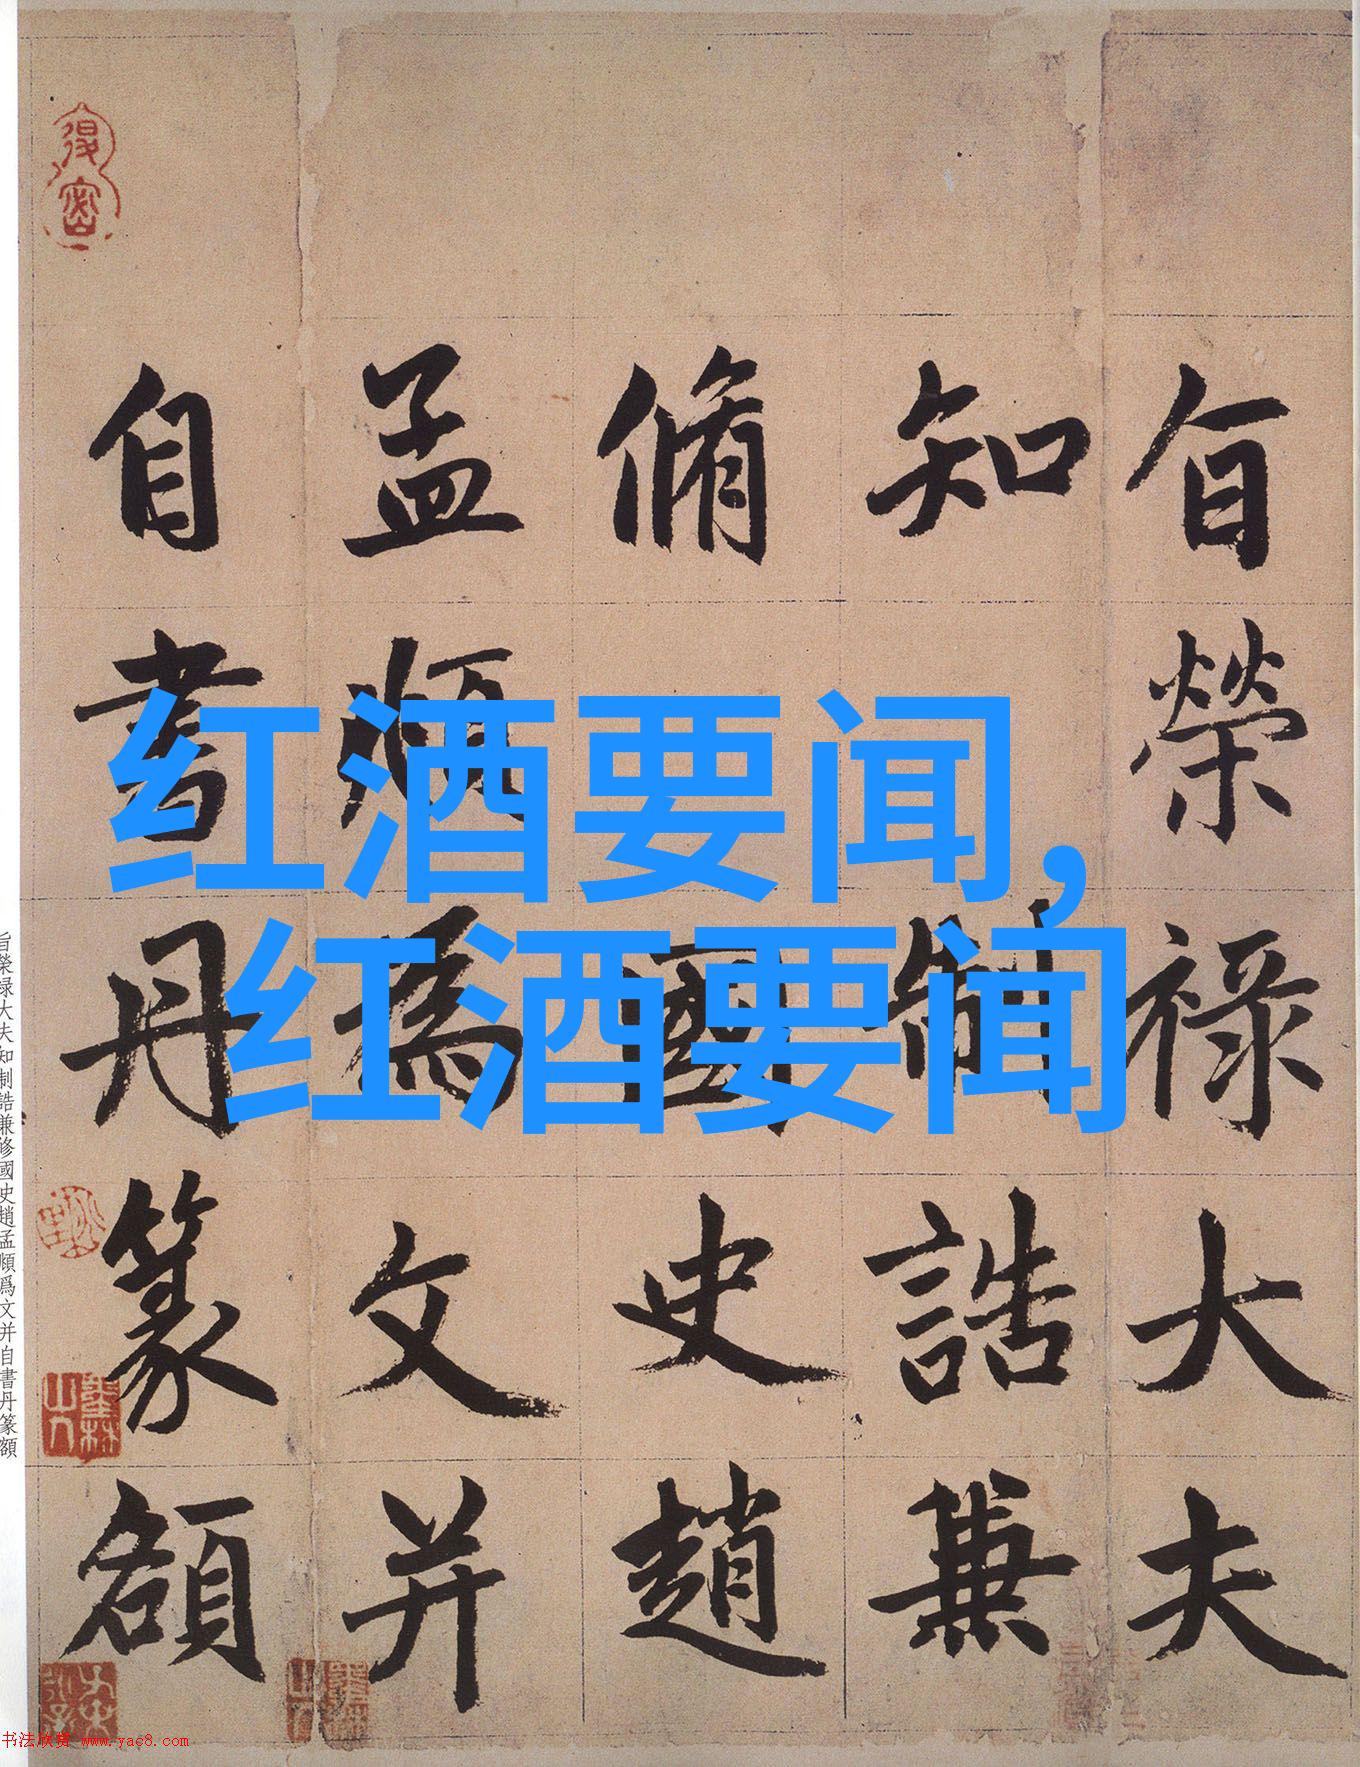 旨榮祿大夫
知制誥兼
脩國史趙
孟頫為文并
自書丹篆額
红酒要闻,
红酒要闻
旨榮禄大夫知制誥兼修國史趙孟頫爲文并自書丹篆額
书法欣赏 www.yac8.com